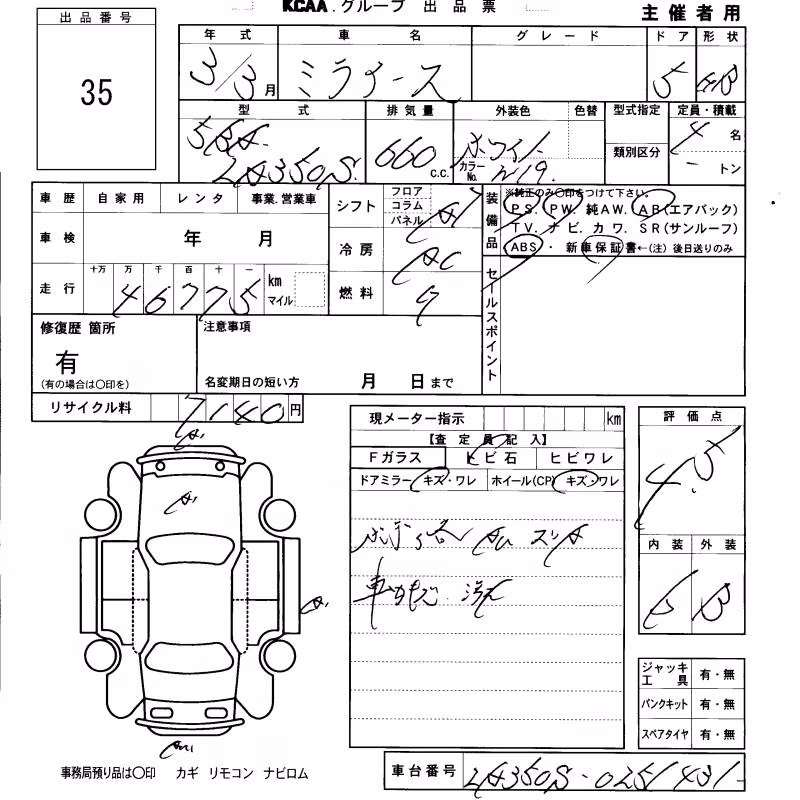 KCAA.グループ 出品票
主催者用
出品番号
35
年式 車名 グレード ドア 形状
3/3月 ミライース 5 HB
型式 排気量 外装色 色替 型式指定 定員・積載
5BA-LA350S 660 c.c. ホワイト カラーNo. W19 類別区分 4名
- トン
車歴 自家用 レンタ 事業.営業車
車検 年 月
走行 十万 万 千 百 十 一 km マイル
46775
シフト フロア コラム パネル AT
冷房 AC
燃料 G
装備品 ※純正のみ〇印をつけて下さい。
PS. PW. 純AW. AB(エアバック)
TV. ナビ. カワ. SR(サンルーフ)
ABS ・ 新車保証書←(注) 後日送りのみ
セールスポイント
修復歴 箇所
有
(有の場合は〇印を)
注意事項
名変期日の短い方 月 日まで
リサイクル料 7140円
現メーター指示 km
【査定員記入】
Fガラス トビ石 ヒビワレ
ドアミラー キズ・ワレ ホイール(CP) キズ・ワレ
評価点
4.5
内装 外装
B B
A1
A1
A1
ジャッキ工具 有・無
パンクキット 有・無
スペアタイヤ 有・無
事務局預り品は〇印 カギ リモコン ナビロム
車台番号 LA350S-0251431-